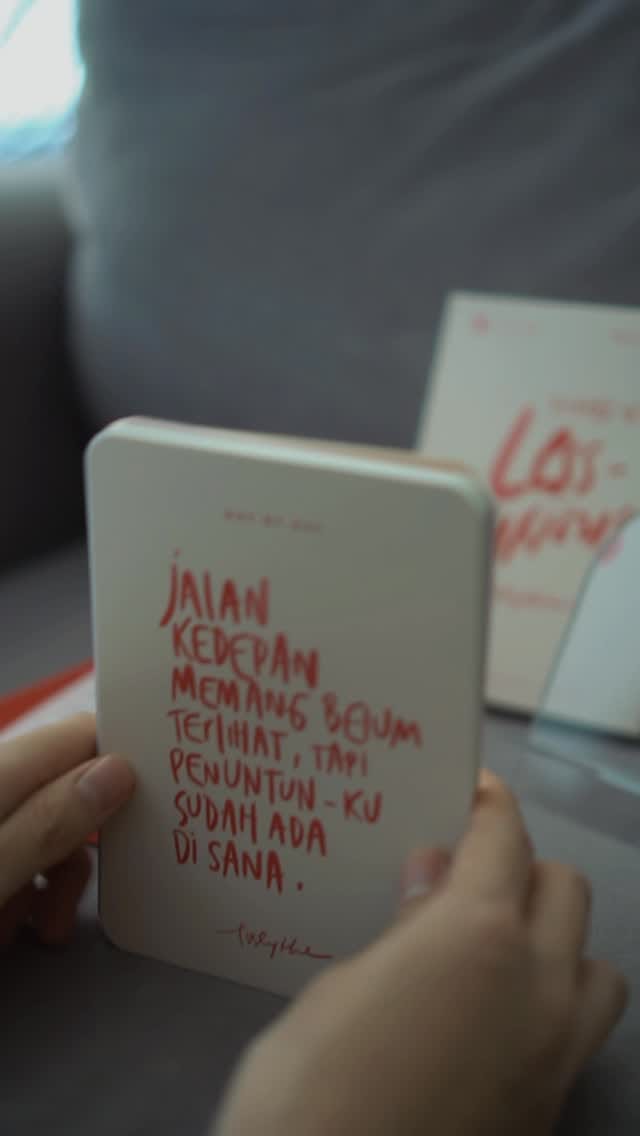 JALAN
KEDEPAN
MEMANG BELUM
TERLIHAT, TAPI
PENUNTUN-KU
SUDAH ADA
DI SANA.
LOS-